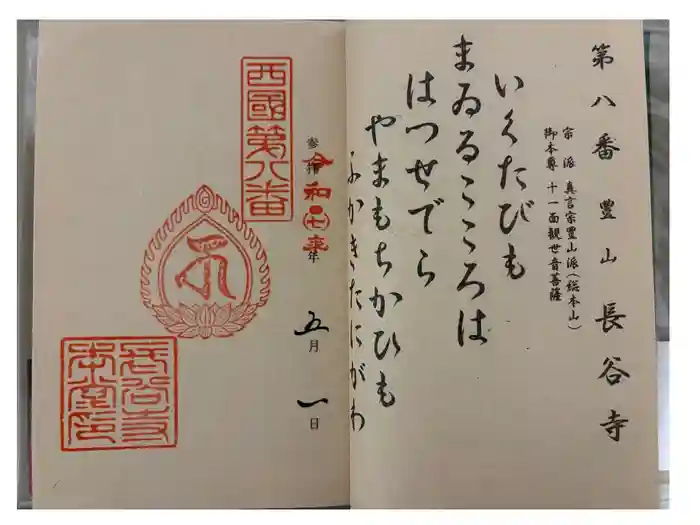 第八番 豊山 長谷寺
宗派 真言宗豊山派(総本山)
御本尊 十一面観世音菩薩
いくたびも
まゐるこころは
はつせでら
やまもちかひも
ふかきたにがわ
西國第八番
参拝 令和 七年 年 五月一日
長谷寺
本堂印